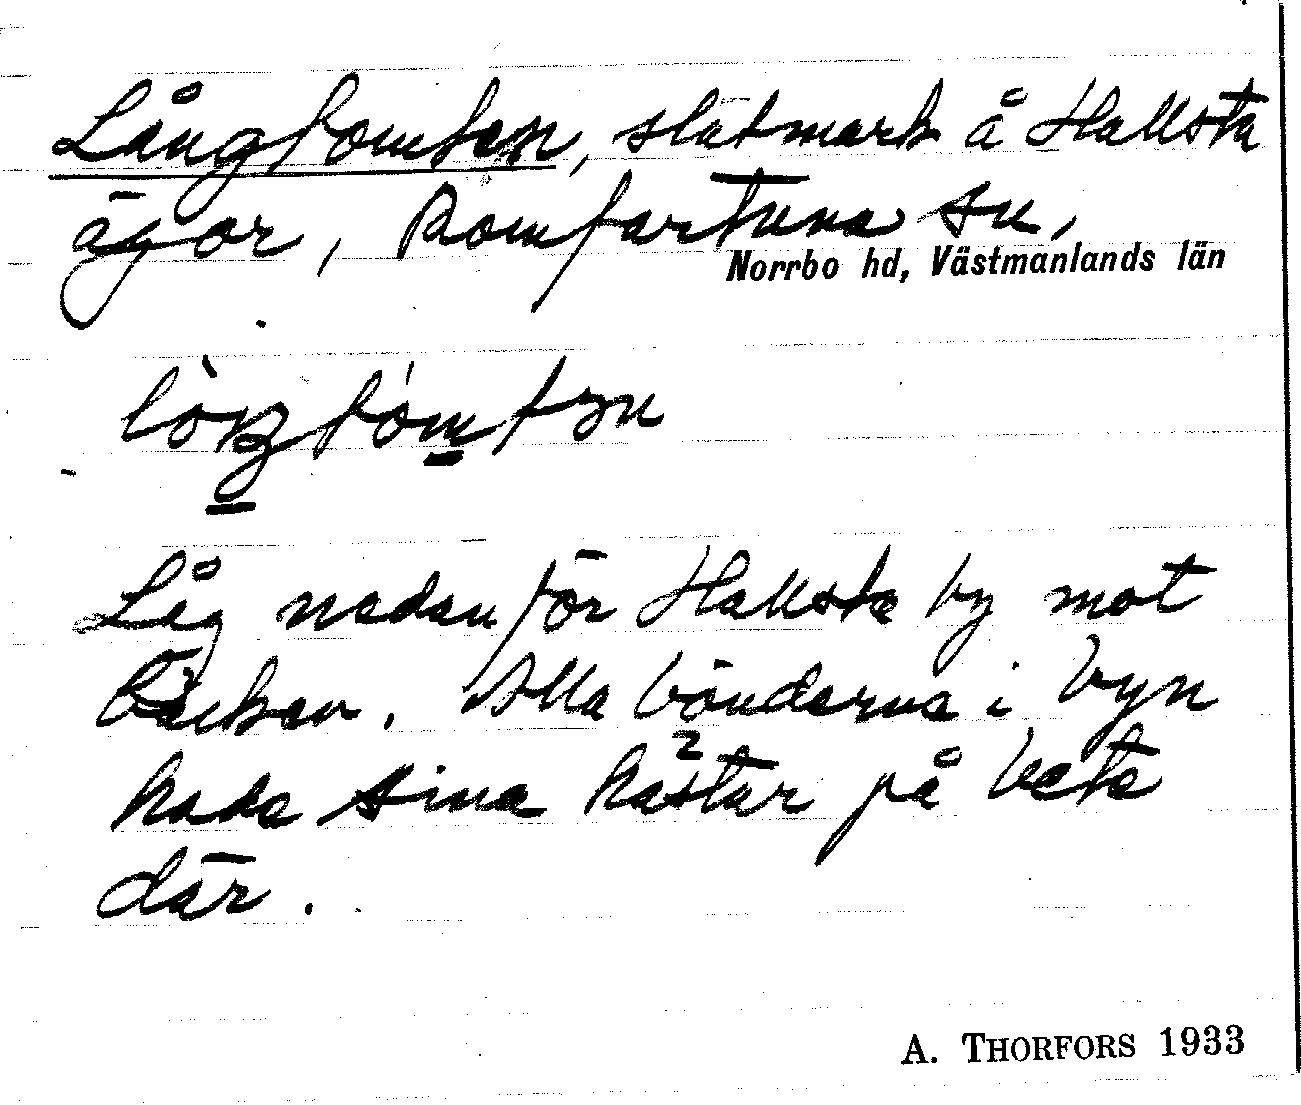 Långtomten, slåtmark å Hallsta
ägor, Romfartuna sn,
Norrbo hd, Västmanlands län
Låg nedanför Hallsta by mot
bäcken. Alla bönderna i byn
hade sina hästar på bete
där.
A. THORFORS 1933